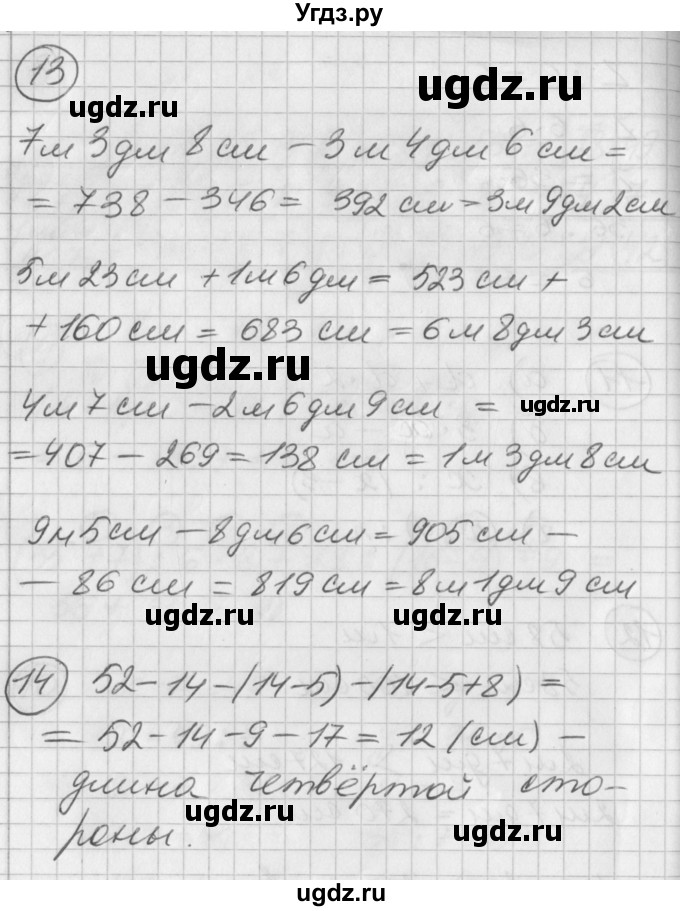 Угдз.ру
13
ugdz.ru
ugdz.ru
7м 3дм 8 см – 3 м 4 дм 6 см =
= 738 – 346 = 392 см = 3м 9дм 2см
5м 23 см + 1м 6 дм = 523 см +
+ 160 см = 683 см = 6 м 8 дм 3 см
ugdz.ru
4м 7 см – 2 м 6 дм 9 см =
ugdz.ru
= 407 – 269 = 138 см = 1 м 3 дм 8 см
9м 5см – 8 дм 6 см = 905 см –
– 86 см = 819 см = 8 м 1 дм 9 см
ugdz.ru
ugdz.ru
14 52 – 14 – (14 – 5) – (14 – 5 + 8) =
= 52 – 14 – 9 – 17 = 12 (см) –
длина четвёртой сто-
роны.
ugdz.ru
ugdz.ru
ugdz.ru